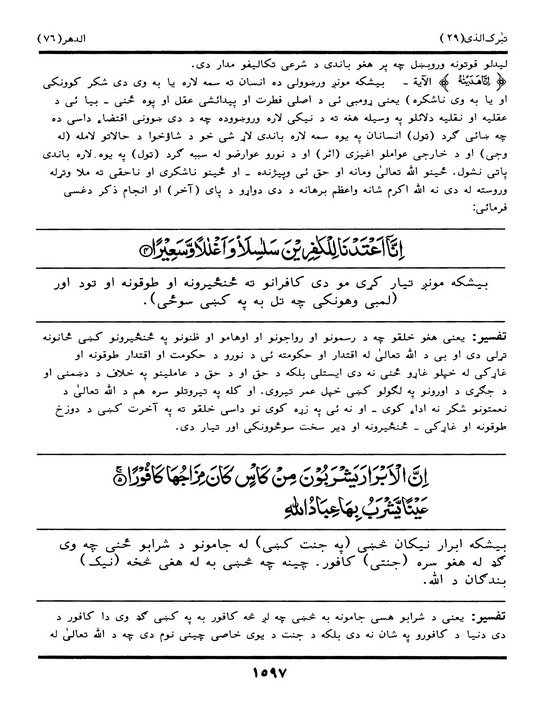 تبٰرک الذی(٢٩) الدهر(٧٦)
لیدلو قوتونه وروبښل چه پر هغو باندی د شرعی تکالیفو مدار دی.
﴿ اِنَّاهَدَيْنٰهُ ﴾ الآية ـ بیشکه مونږ وړښوولی ده انسان ته سمه لاره یا به وی دی شکر کوونکی
او یا به وی ناشکره) یعنی ړومبی ئی د اصلی فطرت او پیدائشی عقل او پوه څنی ـ بیا ئی د
عقلیه او نقلیه دلائلو په وسیله هغه ته د نیکی لاره وروښووده چه د دی ښوونی اقتضاء داسی ده
چه ښائی ګرد (تول) انسانان په یوه سمه لاره باندی لاړ شی خو د شاؤخوا د حالاتو لامله (له
وجی) او د خارجی عواملو اغیزی (اثر) او د نورو عوارضو له سببه ګرد (تول) په یوه لاره باندی
پاتی نشول. ځینو الله تعالیٰ ومانه او حق ئی وپیژنده ـ او ځینو ناشکری او ناحقی ته ملا وتړله
وروسته له دی نه الله اکرم شانه واعظم برهانه د دی دواړو د پای (آخر) او انجام ذکر دغسی
فرمائی:
اِنَّآ اَعْتَدْنَا لِلْكٰفِرِيْنَ سَلٰسِلَا۟ وَاَغْلٰلًا وَّسَعِيْرًا ۝
بیشکه مونږ تیار کړی مو دی کافرانو ته ځنځیرونه او طوقونه او تود اور
(لمبی وهونکی چه تل به په کښی سوځی).
تفسیر: یعنی هغو خلقو چه د رسمونو او رواجونو او اوهامو او ظنونو په ځنځیرونو کښی ځانونه
تړلی دی او بی د الله تعالیٰ له اقتدار او حکومته ئی د نورو د حکومت او اقتدار طوقونه او
غاړکی له خپلو غاړو ځنی نه دی ایستلی بلکه د حق او د حق د عاملینو په خلاف د دښمنی او
د جګړی د اورونو په لګولو کښی خپل عمر تیروی. او کله په تیروتلو سره هم د الله تعالیٰ د
نعمتونو شکر نه اداء کوی ـ او نه ئی په زړه کوی نو داسی خلقو ته په آخرت کښی د دوزخ
طوقونه او غاړکی ـ ځنځیرونه او ډیر سخت سوځوونکی اور تیار دی.
اِنَّ الْاَبْرَارَ يَشْرَبُوْنَ مِنْ كَاْسٍ كَانَ مِزَاجُهَا كَافُوْرًا ۝
عَيْنًا يَّشْرَبُ بِهَا عِبَادُ اللّٰهِ
بیشکه ابرار نیکان څښی (په جنت کښی) له جامونو د شرابو څنی چه وی
ګډ له هغو سره (جنتی) کافور. چینه چه څښی به له هغی څخه (نیک)
بندګان د الله.
تفسیر: یعنی د شرابو هسی جامونه به څښی چه لږ څه کافور به په کښی ګډ وی دا کافور د
دی دنیا د کافورو په شان نه دی بلکه د جنت د یوی خاصی چینی نوم دی چه د الله تعالیٰ له
١٥٩٧